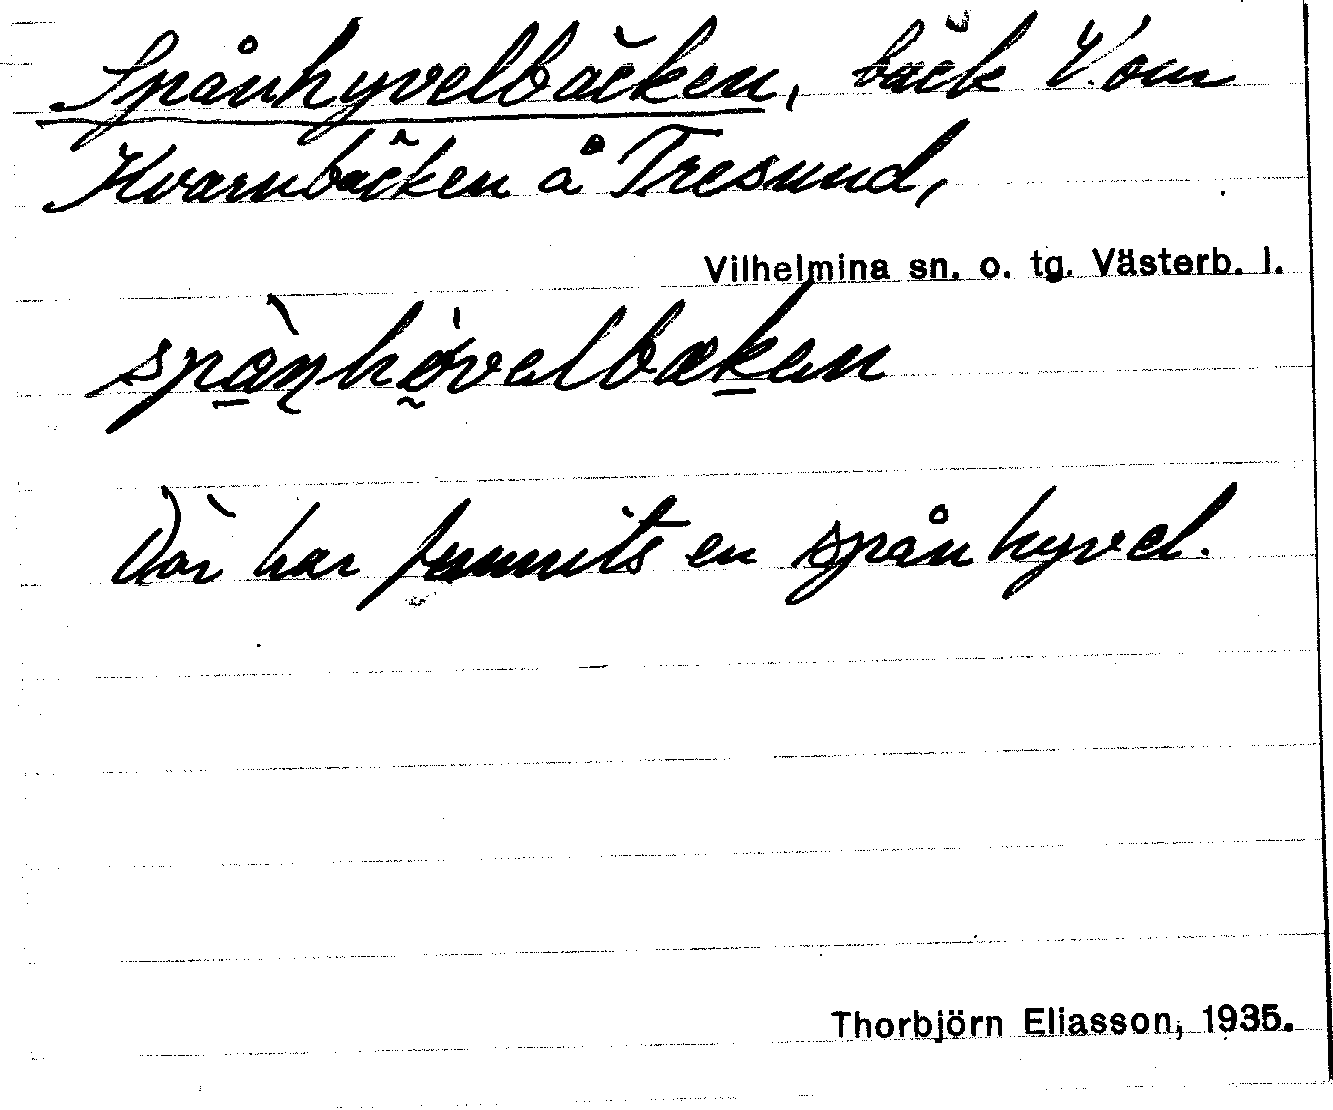 Spånhyvelbäcken, bäck V. om
Kvarnbäcken å Tresund,
Vilhelmina sn. o. tg. Västerb. l.
Där har funnits en spånhyvel.
Thorbjörn Eliasson, 1935.